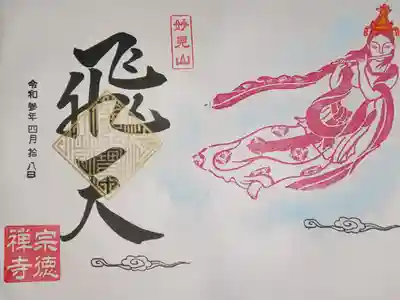 妙見山
飛天
令和参年四月拾八日
宗徳
禅寺